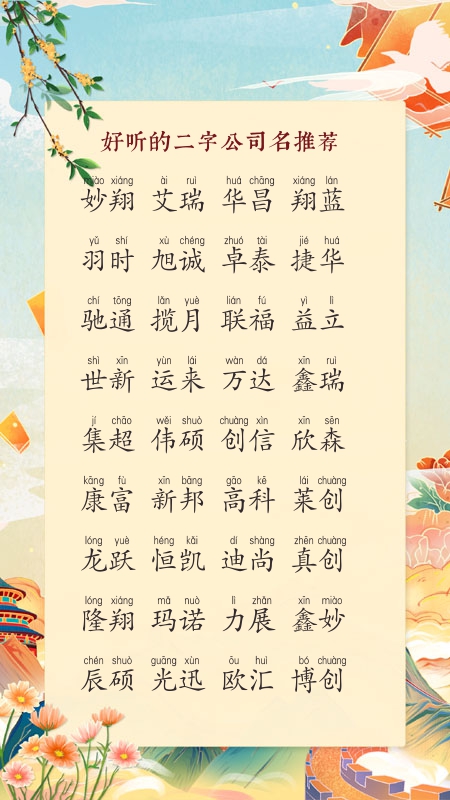 好听的二字公司名推荐
miào xiáng ài ruì huá chāng xiáng lán
妙翔 艾瑞 华昌 翔蓝
yǔ shí xù chéng zhuó tài jié huá
羽时 旭诚 卓泰 捷华
chí tōng lǎn yuè lián fú yì lì
驰通 揽月 联福 益立
shì xīn yùn lái wàn dá xīn ruì
世新 运来 万达 鑫瑞
jí chāo wěi shuò chuàng xìn xīn sēn
集超 伟硕 创信 欣森
kāng fù xīn bāng gāo kē lái chuàng
康富 新邦 高科 莱创
lóng yuè héng kǎi dí shàng zhēn chuàng
龙跃 恒凯 迪尚 真创
lóng xiáng mǎ nuò lì zhǎn xīn miào
隆翔 玛诺 力展 鑫妙
chén shuò guāng xùn ōu huì bó chuàng
辰硕 光迅 欧汇 博创